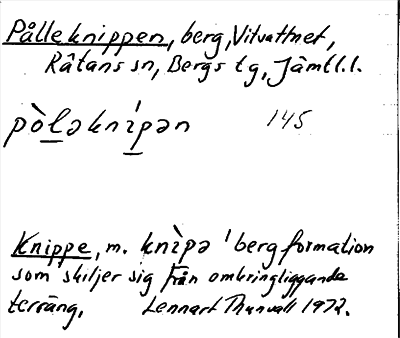 Pålleknippen, berg, Vitvattnet,
Rätans sn, Bergs tg, Jämtl.l.
pòləknípən 145
Knippe, m. knìpə 'bergformation
som skiljer sig från omkringliggande
terräng. Lennart Thunvall 1972.